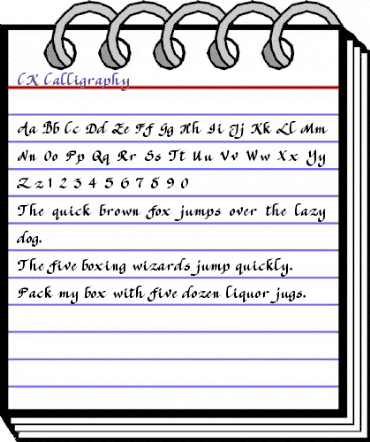 CK Calligraphy
Aa Bb Cc Dd Ee Ff Gg Hh Ii Jj Kk Ll Mm
Nn Oo Pp Qq Rr Ss Tt Uu Vv Ww Xx Yy
Z z 1 2 3 4 5 6 7 8 9 0
The quick brown fox jumps over the lazy
dog.
The five boxing wizards jump quickly.
Pack my box with five dozen liquor jugs.